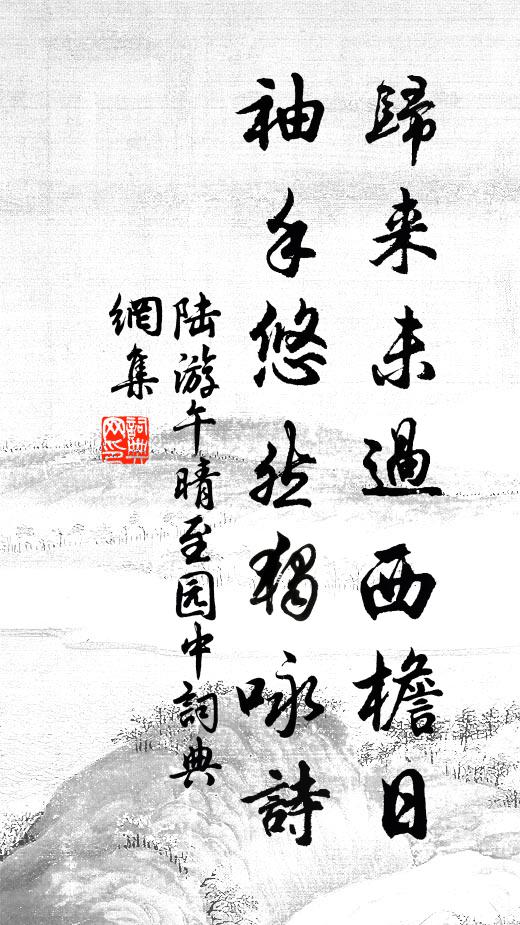 歸来未過西檐日
袖手悠然獨咏詩
陆游午晴至园中詞典
網集
詞典
网印